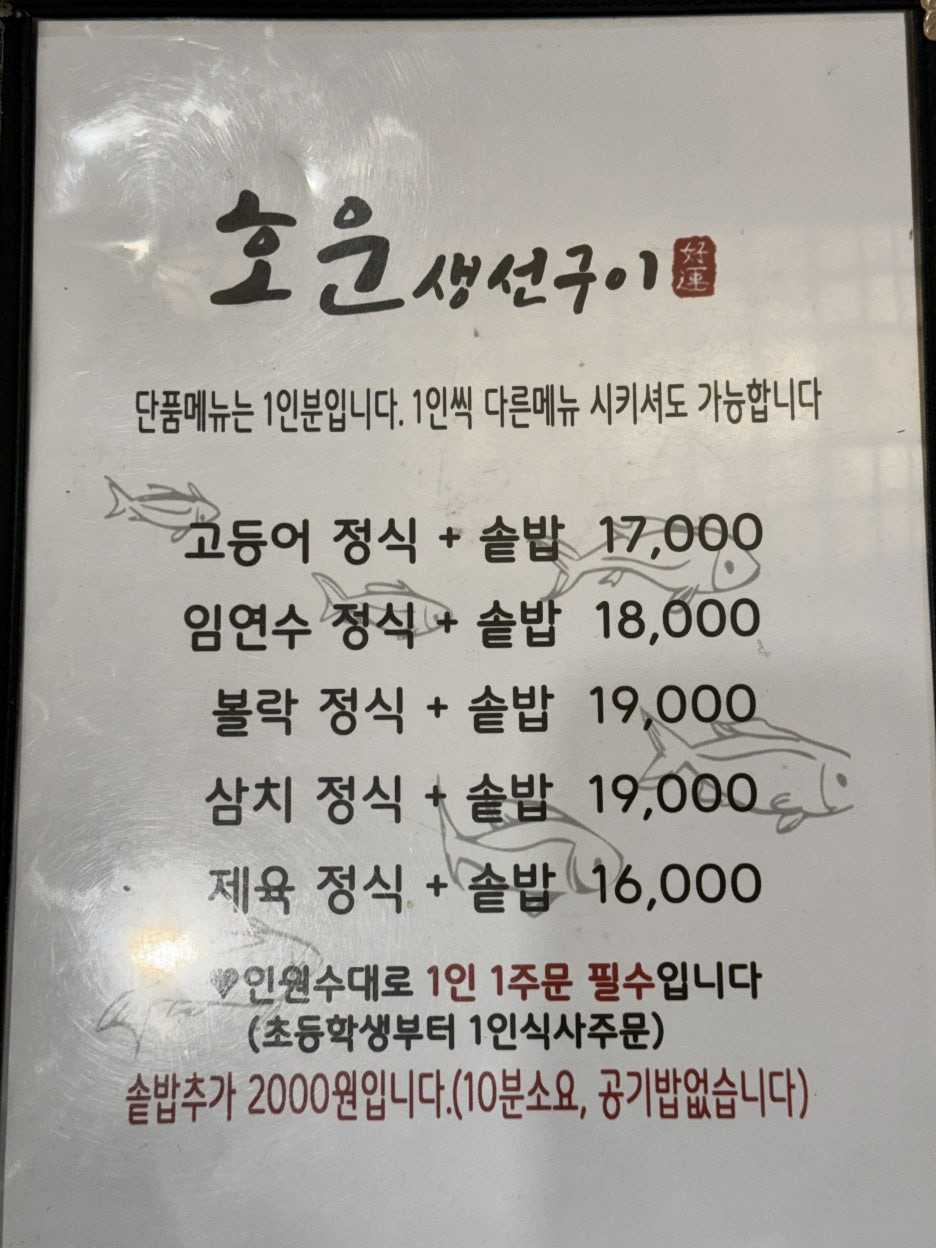 호운 생선구이 好運
단품메뉴는 1인분입니다. 1인씩 다른메뉴 시키셔도 가능합니다
고등어 정식 + 솥밥 17,000
임연수 정식 + 솥밥 18,000
볼락 정식 + 솥밥 19,000
삼치 정식 + 솥밥 19,000
제육 정식 + 솥밥 16,000
♥인원수대로 1인 1주문 필수입니다
(초등학생부터 1인식사주문)
솥밥추가 2000원입니다.(10분소요, 공기밥없습니다)